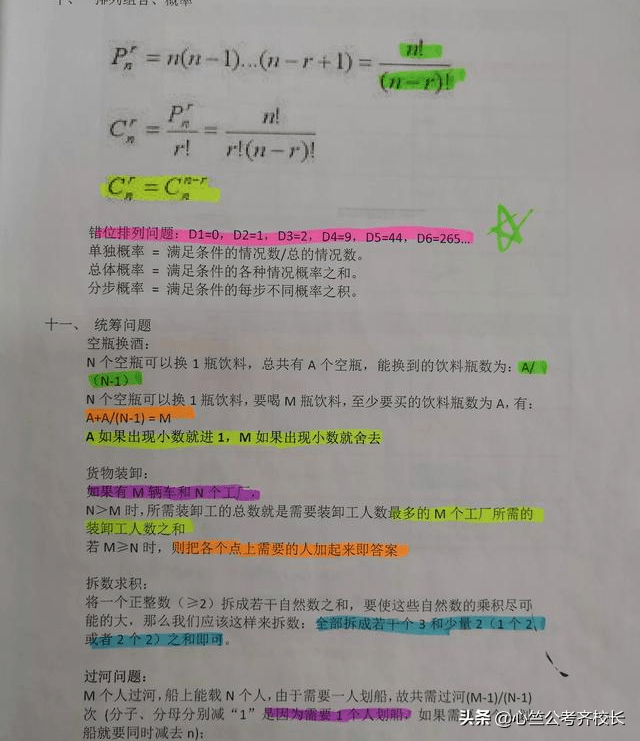 十、 排列组合、概率
P_n^r = n(n−1)...(n−r+1) = n!/(n−r)!
C_n^r = P_n^r/r! = n!/r!(n−r)!
C_n^r = C_n^{n−r}
错位排列问题：D1=0，D2=1，D3=2，D4=9，D5=44，D6=265…
单独概率 = 满足条件的情况数/总的情况数。
总体概率 = 满足条件的各种情况概率之和。
分步概率 = 满足条件的每步不同概率之积。
十一、 统筹问题
空瓶换酒：
N 个空瓶可以换 1 瓶饮料，总共有 A 个空瓶，能换到的饮料瓶数为：A/
（N-1）
N 个空瓶可以换 1 瓶饮料，要喝 M 瓶饮料，至少要买的饮料瓶数为 A，有：
A+A/(N-1) = M
A 如果出现小数就进 1，M 如果出现小数就舍去
货物装卸：
如果有 M 辆车和 N 个工厂，
N＞M 时，所需装卸工的总数就是需要装卸工人数最多的 M 个工厂所需的
装卸工人数之和
若 M≥N 时，则把各个点上需要的人加起来即答案
拆数求积：
将一个正整数（≥2）拆成若干自然数之和，要使这些自然数的乘积尽可
能的大，那么我们应该这样来拆数：全部拆成若干个 3 和少量 2（1 个 2、
或者 2 个 2）之和即可。
过河问题：
M 个人过河，船上能载 N 个人，由于需要一人划船，故共需过河(M-1)/(N-1)
次 (分子、分母分别减“1”是因为需要 1 个人划船，如果需
船就要同时减去 n)；
头条 @心竺公考齐校长